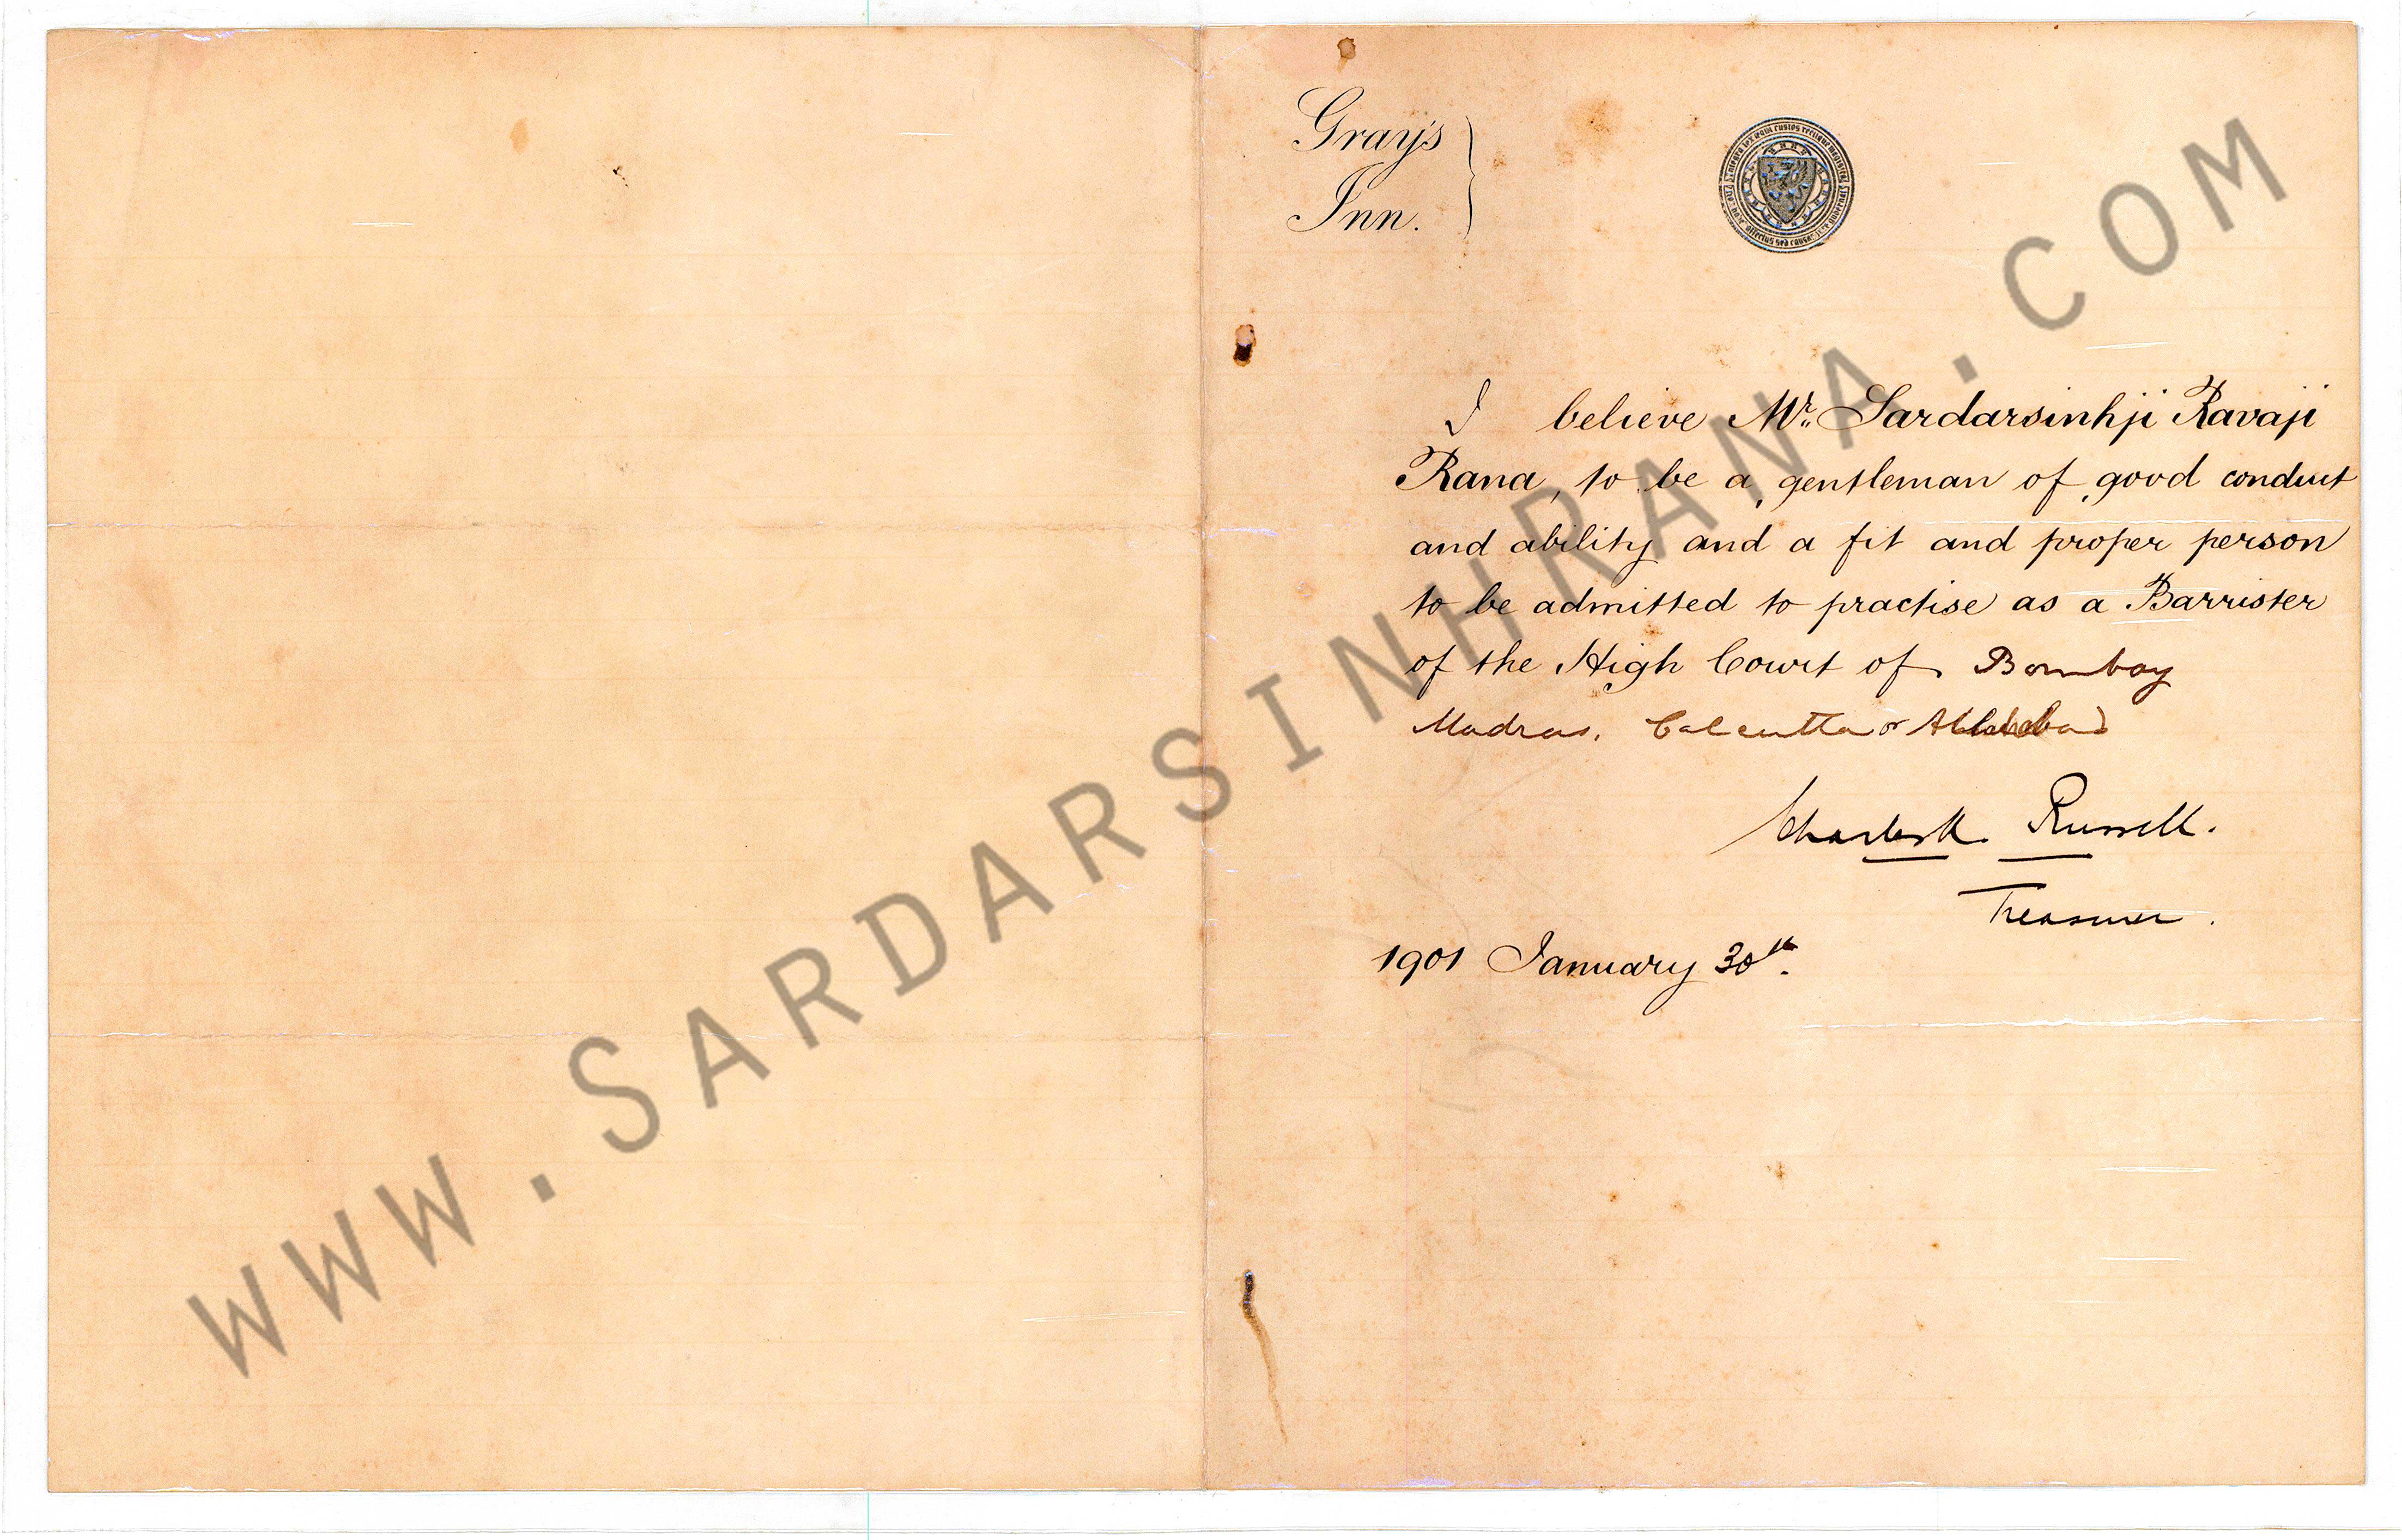 Gray's
Inn.
I believe Mr. Sardarsinhji Ravaji
Rana, to be a gentleman of good conduct
and ability and a fit and proper person
to be admitted to practise as a Barrister
of the High Court of Bombay
Madras, Calcutta or Allahabad
Russell.
Treasurer.
1901 January 30th.
WWW.SARDARSINHRANA.COM